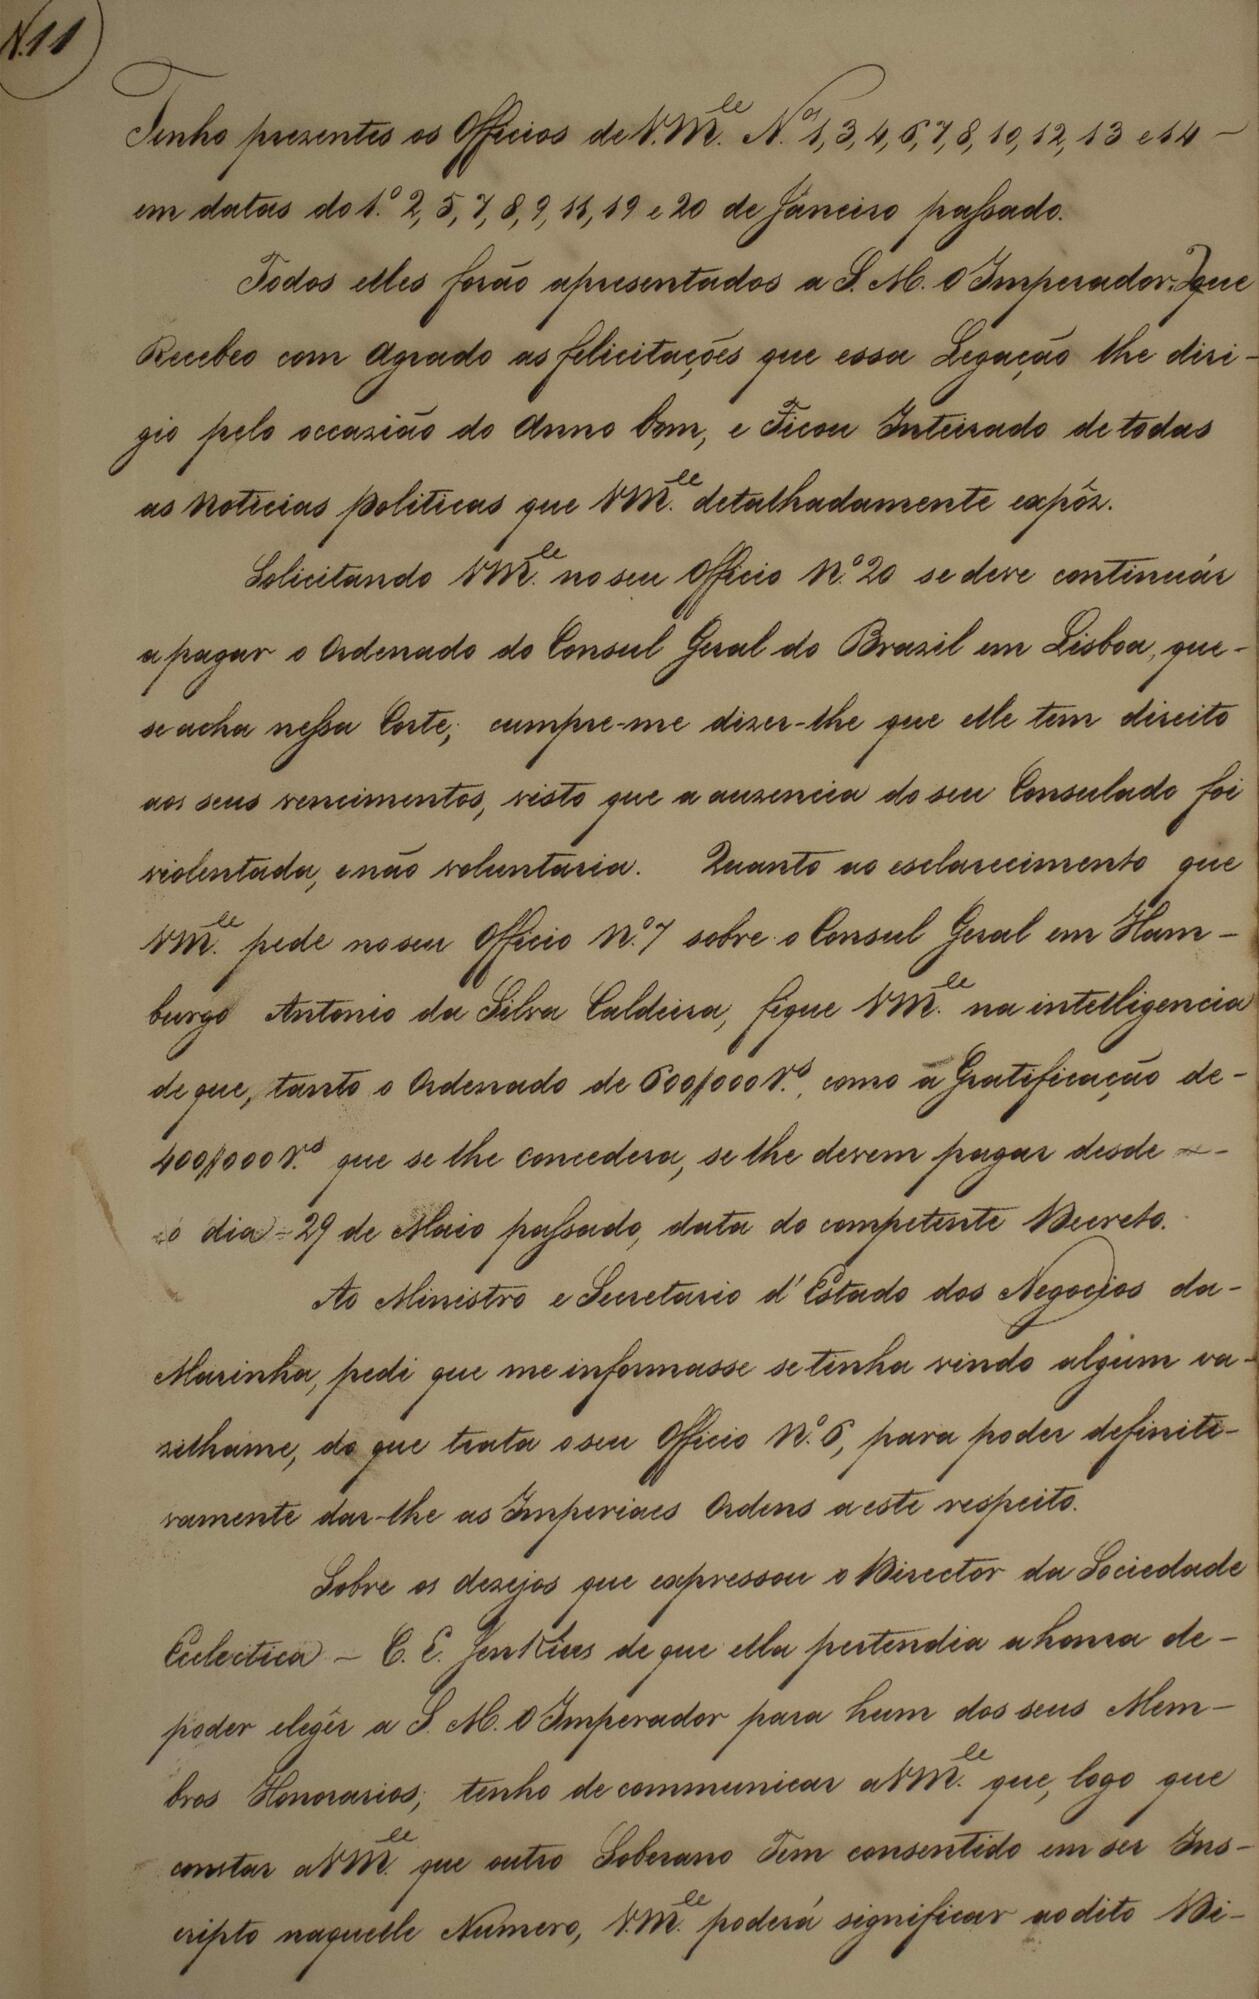 N.11
Tenho prezentes os Officios de V.M.ce N.os 1, 3, 4, 6, 7, 8, 10, 12, 13 e 14 -
em datas do 1.º 2, 5, 7, 8, 9, 11, 19 e 20 de Janeiro passado.
Todos elles forão apresentados a S. M. O Imperador, que
Recebeo com Agrado as felicitações que essa Legação lhe diri-
gio pelo occazião do Anno bom, e Ficou Inteirado de todas
as Noticias politicas que VM.ce detalhadamente expôz.
Solicitando VM.ce no seu Officio N.º 20 se deve continuár
a pagar o Ordenado do Consul Geral do Brazil em Lisboa, que-
se acha nessa Corte; cumpre-me dizer-lhe que elle tem direito
aos seus vencimentos, visto que a auzencia do seu Consulado foi
violentada, e não voluntaria. Quanto ao esclarecimento que
VM.ce pede no seu Officio N.º 7 sobre o Consul Geral em Ham-
burgo Antonio da Silva Caldeira, fique VM.ce na intelligencia
de que, tanto o Ordenado de 600$000 r.s, como a Gratificação de-
400$000 r.s que se lhe concedera, se lhe devem pagar desde -
o dia - 29 de Maio passado, data do competente Decreto.
Ao Ministro e Secretario d'Estado dos Negocios da-
Marinha, pedi que me informasse se tinha vindo algum va-
zilhame, do que trata o seu Officio N.º 6, para poder definiti-
vamente dar-lhe as Imperiaes Ordens a este respeito.
Sobre os dezejos que expressou o Director da Sociedade
Eclectica - C. E. Jenkins de que ella pertendia a honra de-
poder elegêr a S. M. O Imperador para hum dos seus Mem-
bros Honorarios; tenho de communicar a VM.ce que, logo que
constar a VM.ce que outro Soberano Tem consentido em ser Ins-
cripto naquelle Numero, V.M.ce poderá significar ao dito Di-